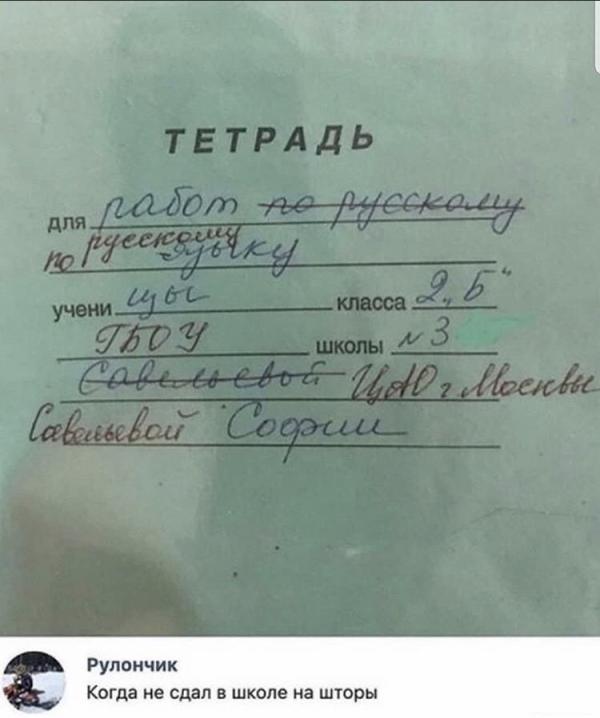 ТЕТРАДЬ
для работ по русскому
по русскому языку
учени цы класса 2 „Б“
ГБОУ школы №3
Савельевой ЦАО г. Москвы
Савельевой Софии
Рулончик
Когда не сдал в школе на шторы